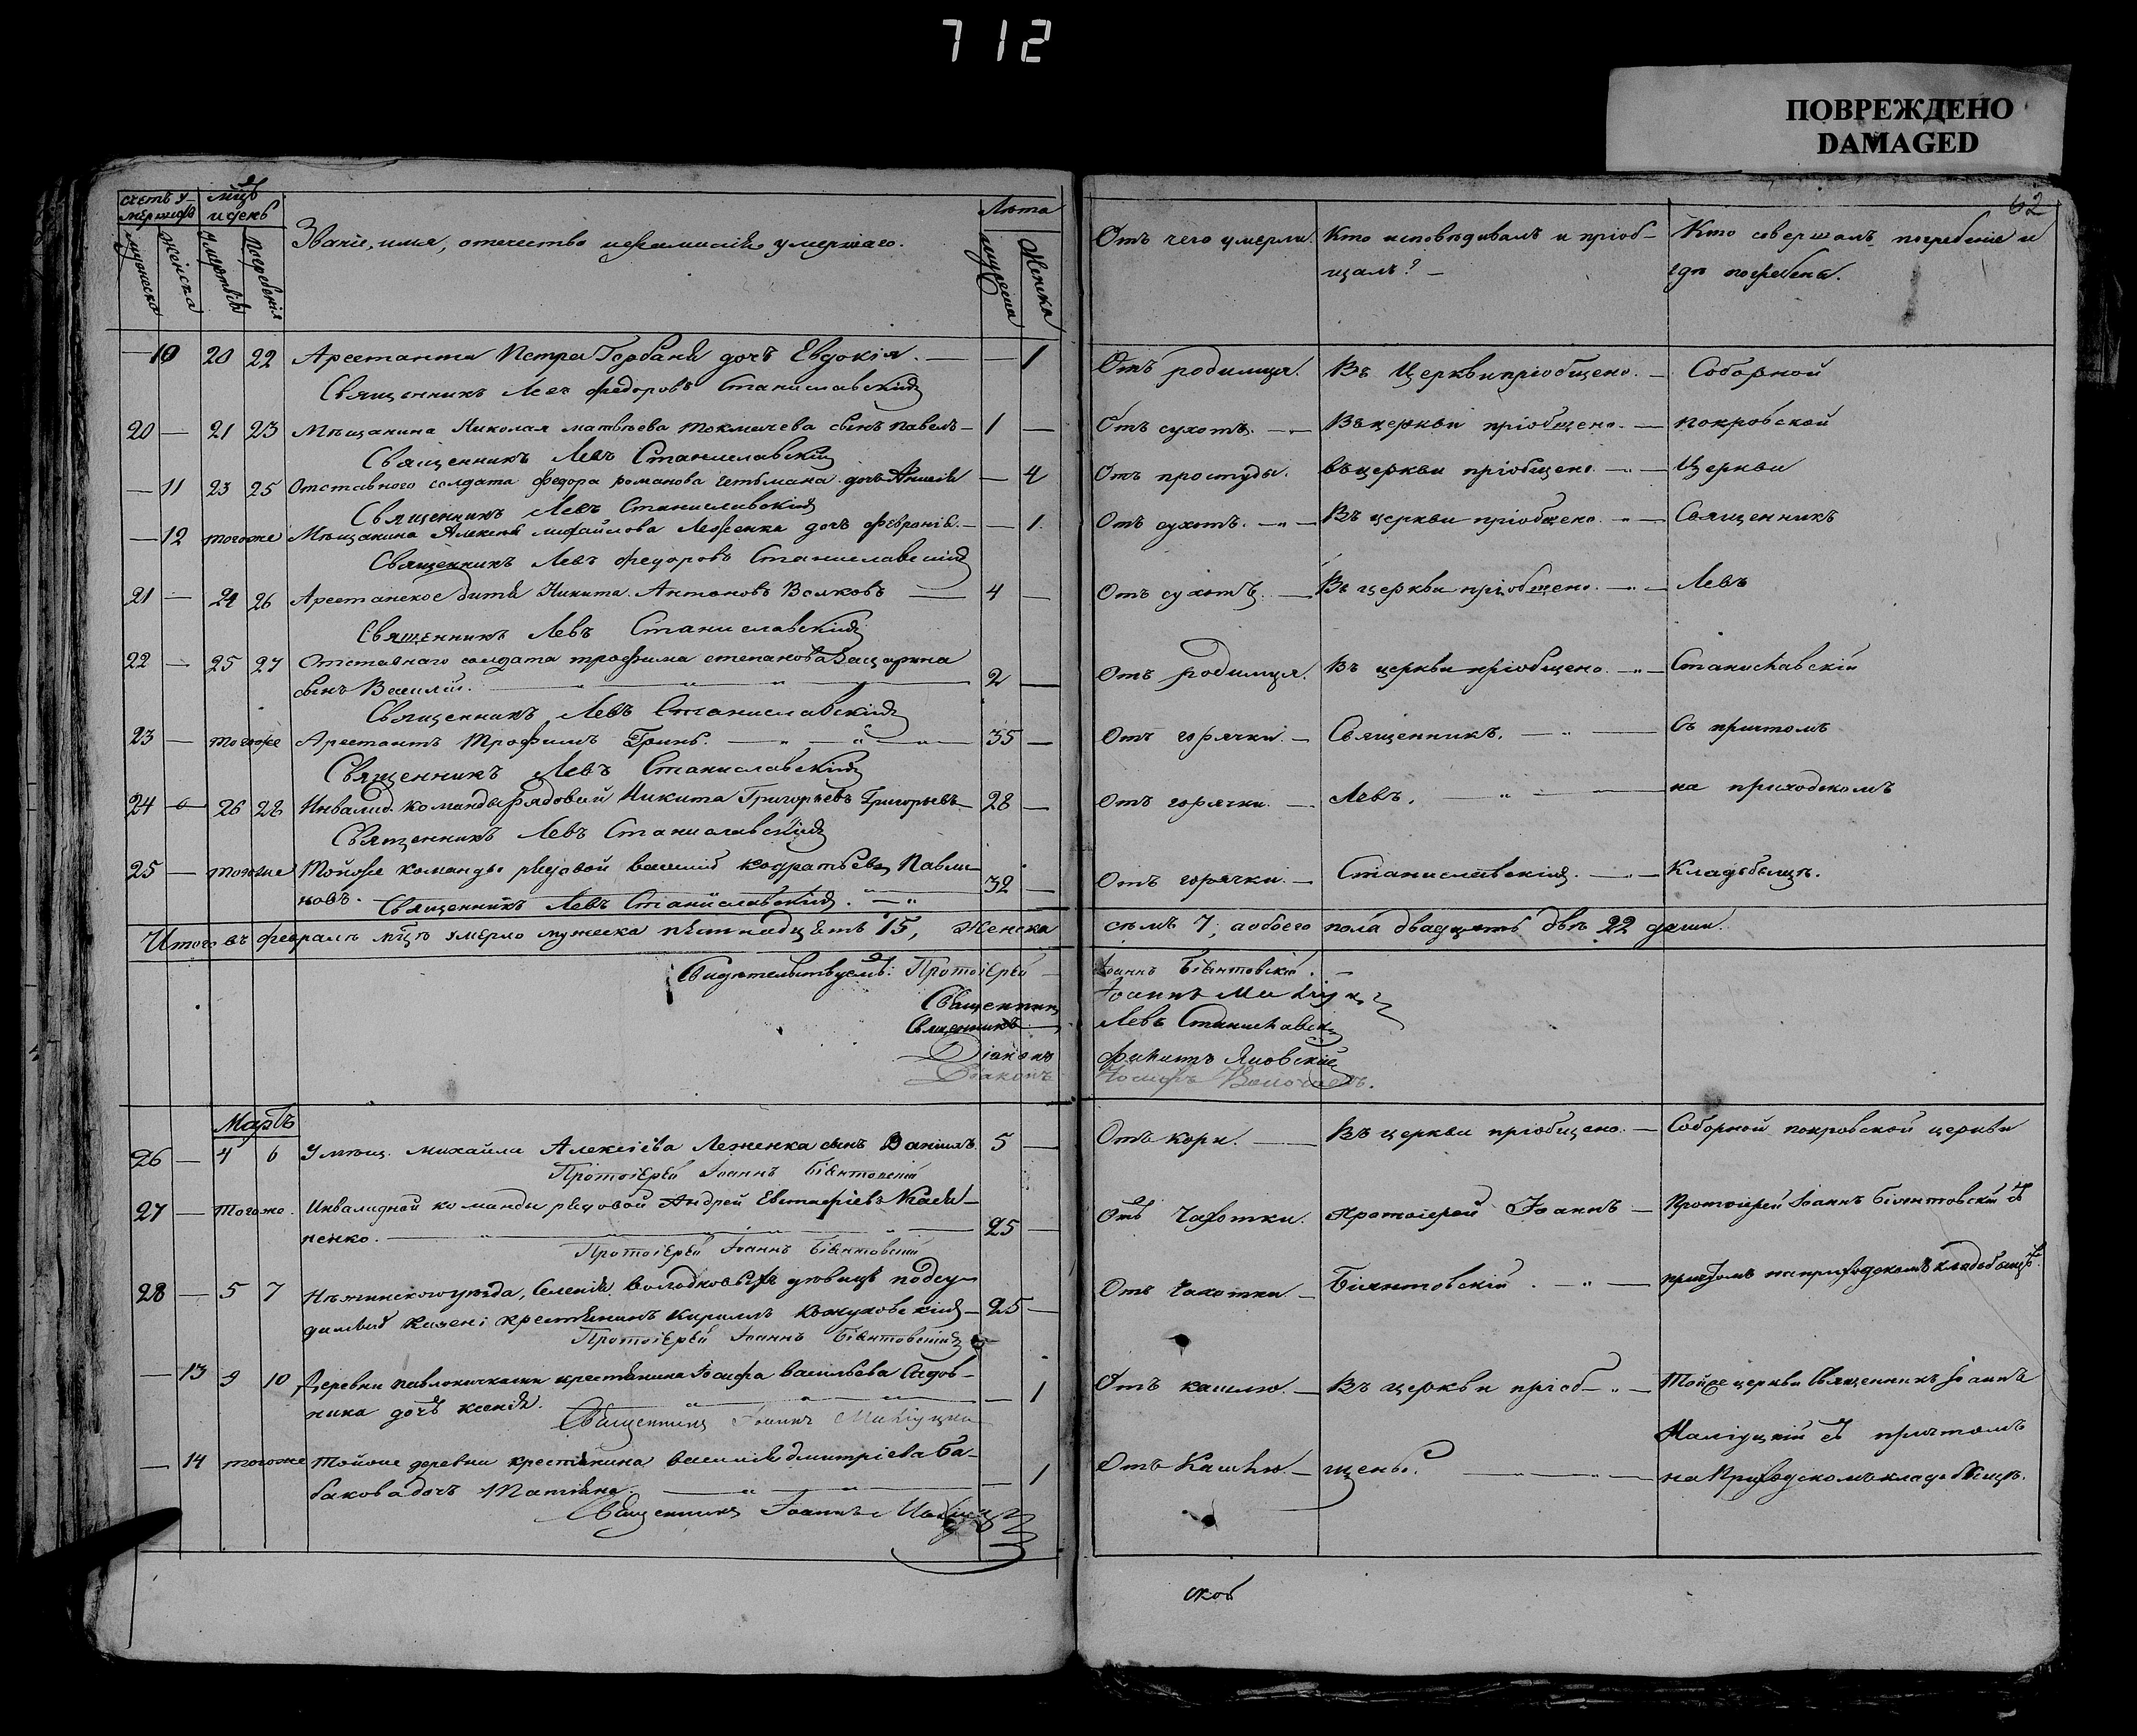 712
ПОВРЕЖДЕНО
DAMAGED
62
счетъ у-
мершихъ
мцъ
и день
Звание, имя, отечество и фамилия умершаго.
Лѣта
мужеска
женска
умертвія
погребенія
мужеска
Женска
Отъ чего умерли.
Кто исповѣдивалъ и пріоб-
щалъ? —
Кто совершалъ погребеніе и
гдѣ погребены.
— 10 20 22 Арестанта Петра Горбаня дочь Евдокія. — — 1 Отъ родимца. Въ Церкви пріобщено. — Соборной
Священникъ Левъ Федоровъ Станиславскій
20 — 21 23 Мѣщанина Николая Матвѣева сынъ Павелъ — 1 — Отъ сухотъ. — Въ церкви пріобщено. — покровской
Священникъ Левъ Станиславскій
— 11 23 25 Отставного солдата Федора Романова Гетьмана дочь — 4 Отъ простуды. въ церкви пріобщено — Церкви
Священникъ Левъ Станиславскій
— 12 тогоже Мѣщанина Алексея Михайлова Леженка дочь Февронія. — — 1. Отъ сухотъ. — Въ церкви пріобщено. — Священникъ
Священникъ Левъ Федоровъ Станиславскій
21 — 24 26 Арестанское дитя Никита Антоновъ Волковъ — 4 — Отъ сухотъ. — Въ церкви пріобщено. — Левъ
Священникъ Левъ Станиславскій
22 — 25 27 Отставнаго солдата Трофима Степанова
сынъ Василій. — 2 — Отъ родимца. Въ церкви пріобщено. — Станиславскій
Священникъ Левъ Станиславскій
23 — тогоже Арестантъ Трофимъ Гринь. — 35 — Отъ горячки — Священникъ. — съ притомъ
Священникъ Левъ Станиславскій
24 — 26 28 Инвалид. команды рядовой Никита Григорьевъ Григорьевъ — 28 — Отъ горячки. — Левъ. — на приходскомъ
Священникъ Левъ Станиславскій
25 — тогоже Тойже команды рядовой Василій Павли-
новъ. Священникъ Левъ Станиславскій. — 32 — Отъ горячки. — Станиславскій. — Кладьбыщѣ.
Итого въ Февралѣ мцѣ умерло мужеска пятнадцать 15, Женска семь 7, а обоего пола двадцать двѣ 22 души.
Свидѣтельствуемъ: Протоіерей Іоаннъ Біянтовскій. —
Священникъ Іоаннъ
Священникъ Левъ Станиславскій
Діаконъ Яновскій
Діаконъ
Мартъ
26 — 4 6 Умѣщ. Михайла Алексіева Леженка сынъ Даніилъ. 5 — Отъ кори. — Въ церкви пріобщено. — Соборной покровской церкви
Протоіерей Іоаннъ Біянтовскій
27 — Тогоже. Инвалидной команды рядовой Андрей Евстафіевъ
ненко. — 25 — Отъ Чахотки. Протоіерей Іоаннъ — Протоіерей Іоаннъ Біянтовскій съ
Протоіерей Іоаннъ Біянтовскій
28 — 5 7 Нѣжинскогоуѣзда, Селенія подсу-
крестьянинъ Кириллъ Кожуховскій — 25 — Отъ Чахотки — Біянтовскій. — притомъ на приходскомъ кладьбыщѣ.
Протоіерей Іоаннъ Біянтовскій
— 13 9 10 Деревни крестьянина Васильева Садов-
ника дочь Ксенія. — 1 Отъ кашлю. — Въ церкви пріоб- — Тойже церкви Священникъ Іоаннъ
Священникъ Іоаннъ
съ притомъ
— 14 тогоже Тойже деревни крестьянина Василія Дмитріева Ба-
бакова дочь Татіяна. — 1 Отъ Кашлю. — щены. — на Приходскомъ кладьбыщѣ.
Священникъ Іоаннъ
скоб